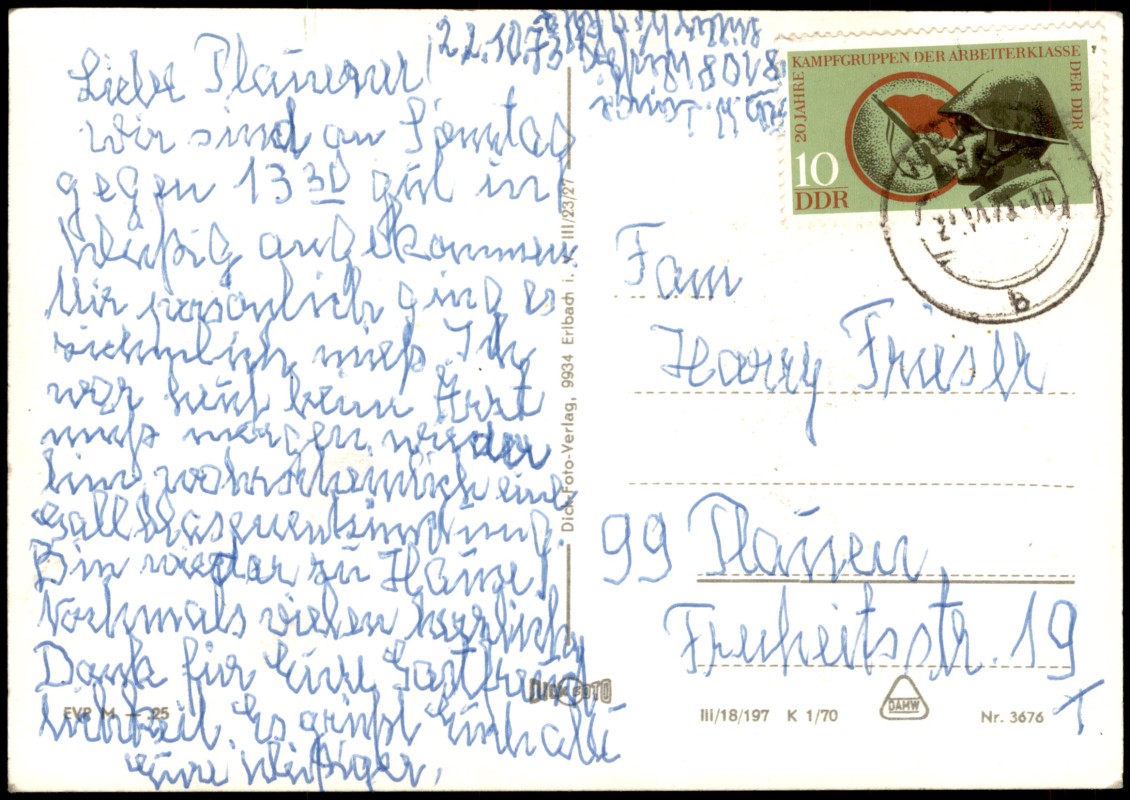 22.10.73
Liebe Plauener!
Wir sind am Sonntag
gegen 13 30 gut in
angekommen.
Mir persönlich ging es
ziemlich mies. Ich
war heut beim Arzt
muß morgen wieder
hin, wahrscheinlich eine
Gallblasenentzündung.
Bin wieder zu Hause!
Nochmals vielen herzlichen
Dank für Eure Gastfreund
Es grüßt Euch alle
Eure
8018
20 JAHRE KAMPFGRUPPEN DER ARBEITERKLASSE DER DDR
10
DDR
b
Fam
Harry Friesl
99 Plauen
Freiheitsstr. 19
Dick-Foto-Verlag, 9934 Erlbach i. V. III/23/27
DICK FOTO
EVP M —.25
III/18/197 K 1/70
DAMW
Nr. 3676